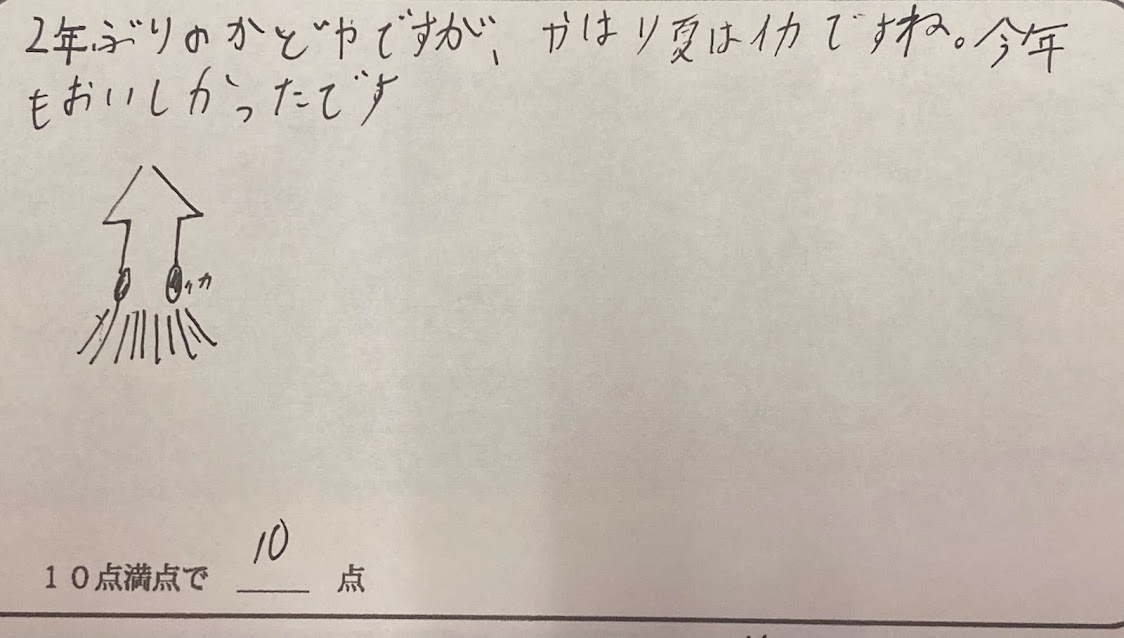 2年ぶりのかどやですが、やはり夏はイカですね。今年
もおいしかったです
イカ
10点満点で 10 点